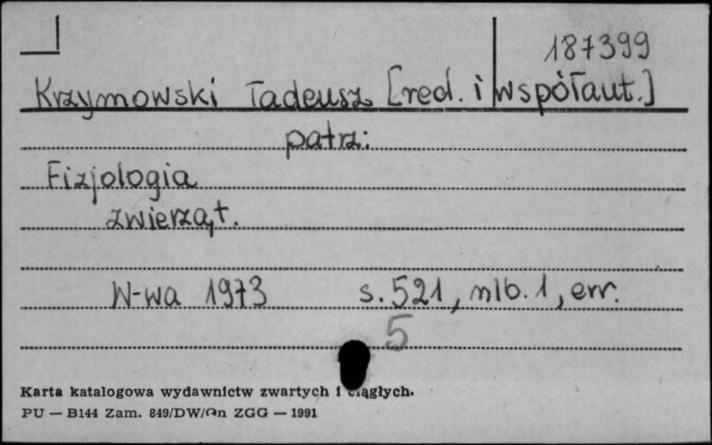 187399
Krzymowski Tadeusz [red. i współaut.]
patrz:
Fizjologia
zwierząt.
W-wa 1973 s. 521, nlb. 1, err.
5
Karta katalogowa wydawnictw zwartych i ciągłych.
PU — B144 Zam. 849/DW/ ZGG — 1991